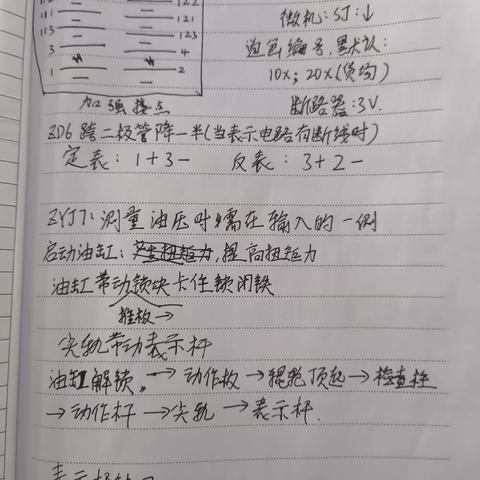 112 122
111 121
113 123
3 4
1 2
加强接点
微机:SJ:↓
10x; 20x(货场)
断路器:3V.
ZD6 跨二极管降一半(当表示电路有断线时)
定表: 1+3- 反表: 3+2-
ZYJ7: 测量油压时需在输入的一侧
启动油缸: 提高扭矩力
油缸带动锁块卡住锁闭铁
推板→
尖轨带动表示杆
油缸解锁 → 动作板 → 辊轮顶起 → 检查柱
→ 动作杆 → 尖轨 → 表示杆.